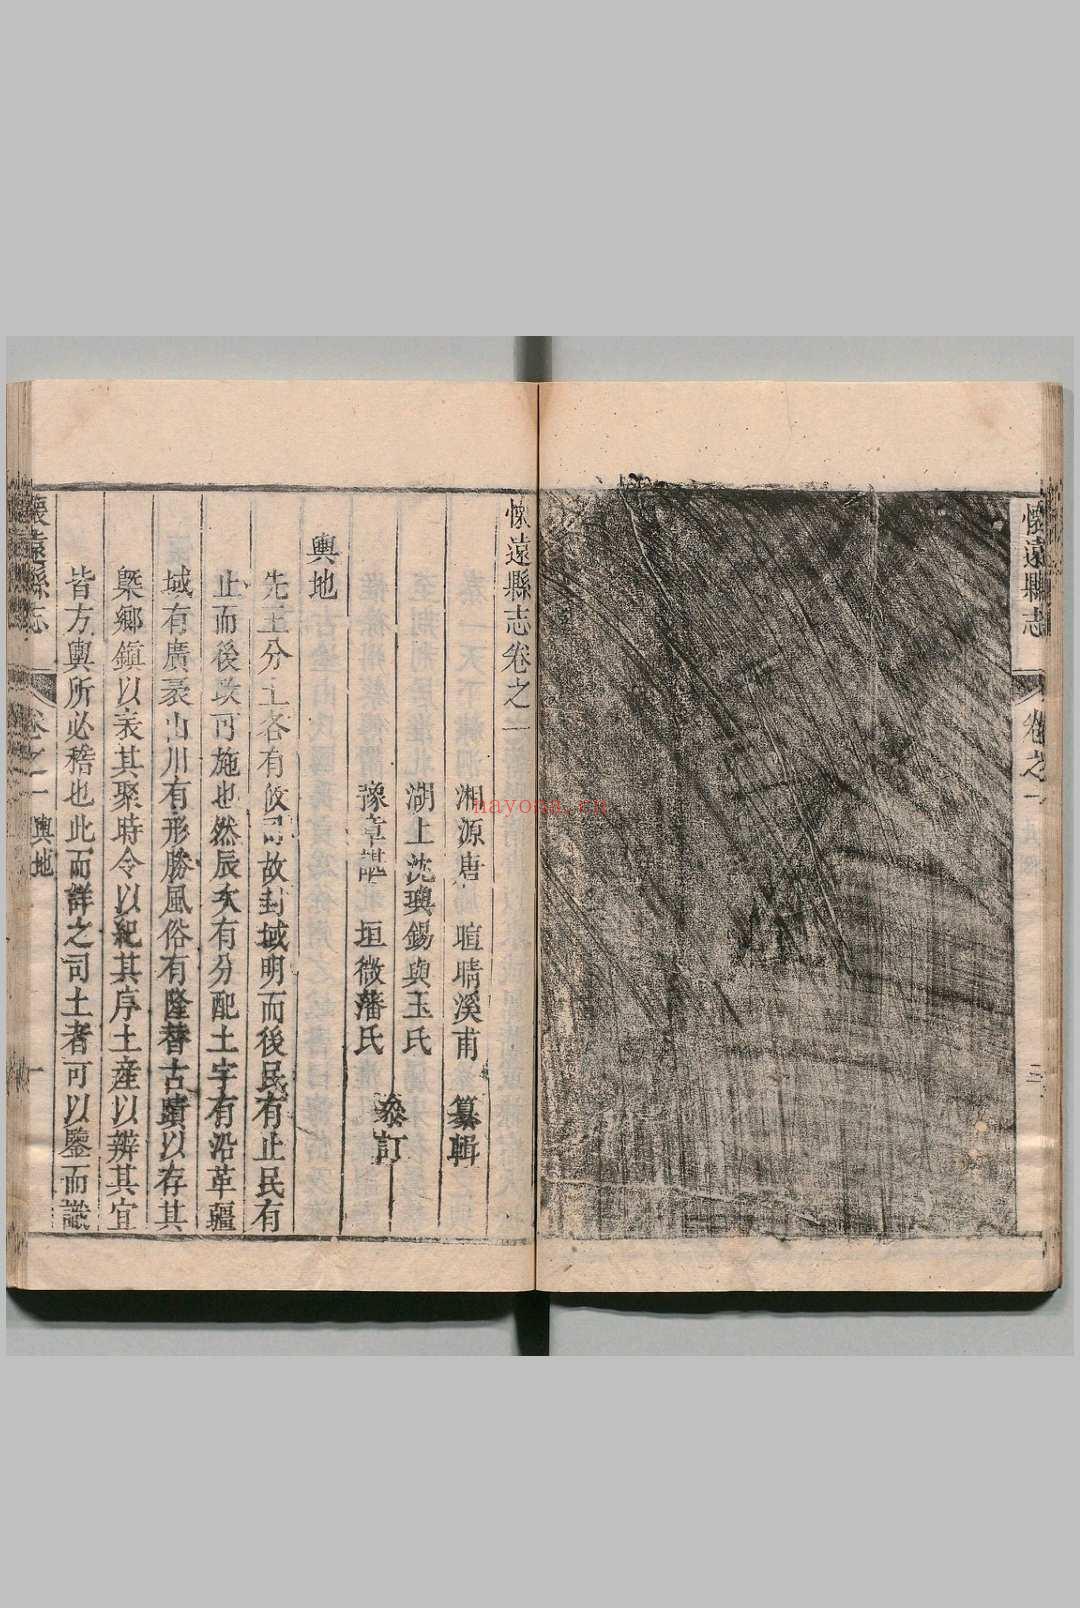 懷遠縣志
卷之
二
懷遠縣志卷之一
湘源唐 暄晴溪甫 纂輯
湖上沈 錫與玉氏
豫章諶 垣微藩氏 叅訂
輿地
先王分土各有攸司故封域明而後民有止民有
止而後政可施也然辰 有分配土宇有沿革疆
域有廣袤山川有形勝風俗有隆替古蹟以存其
槩鄉鎮以表其聚時令以紀其序土產以辨其宜
皆方輿所必稽也此而詳之司土者可以鑒而識
懷遠縣志
卷之一 輿地
一
nayona.cn